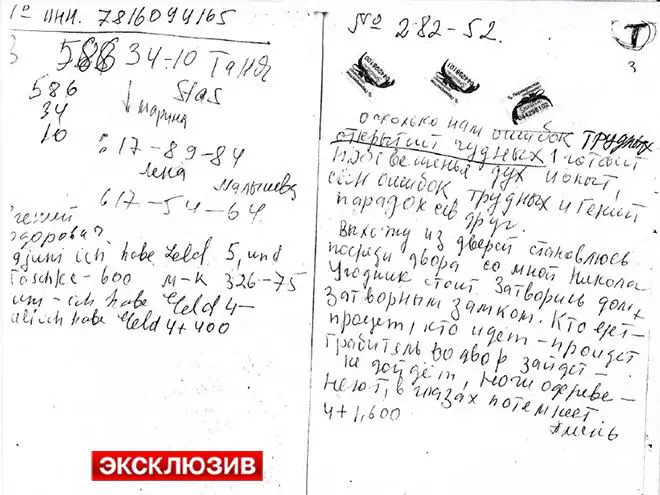 ИНН. 7816094165
586 34-10 Таня
586
34
10
Stas
↓ Марина
: 17-89-84
Лена
Малышева
617-54-64
ich habe Geld 5, und
600 м-к 326-75
ich habe Geld 4-
ich habe Geld 4+400
№ 282-52.
Т
3
О сколько нам ошибок трудных
открытий чудных готовит
дух и опыт,
сын ошибок трудных и гений
парадоксов друг.
Выхожу из дверей становлюсь
посреди двора со мной Никола
Угодник стоит Затворись дом
затворным замком. Кто едет-
проедет, кто идет-пройдет
грабитель во двор зайдет-
не дойдет, ноги одереве-
неют, в глазах потемнеет
4+1,600
Аминь
ЭКСКЛЮЗИВ